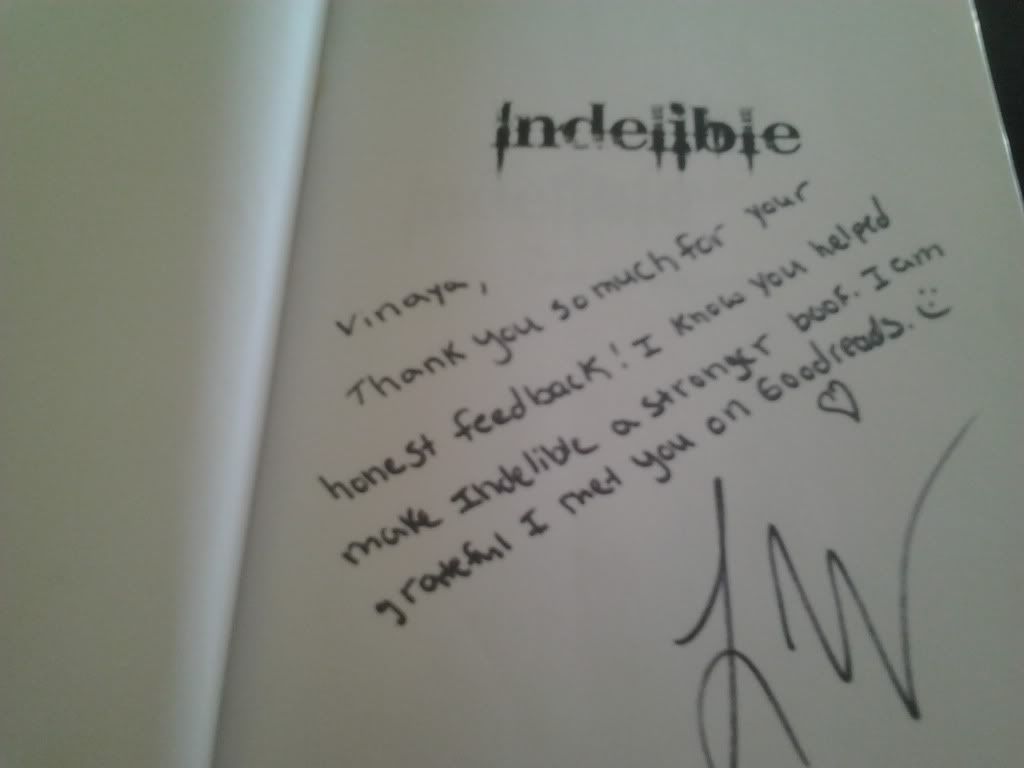 Indelible
Vinaya,
Thank you so much for your
honest feedback! I know you helped
make Indelible a stronger book. I am
grateful I met you on Goodreads. :)
♡